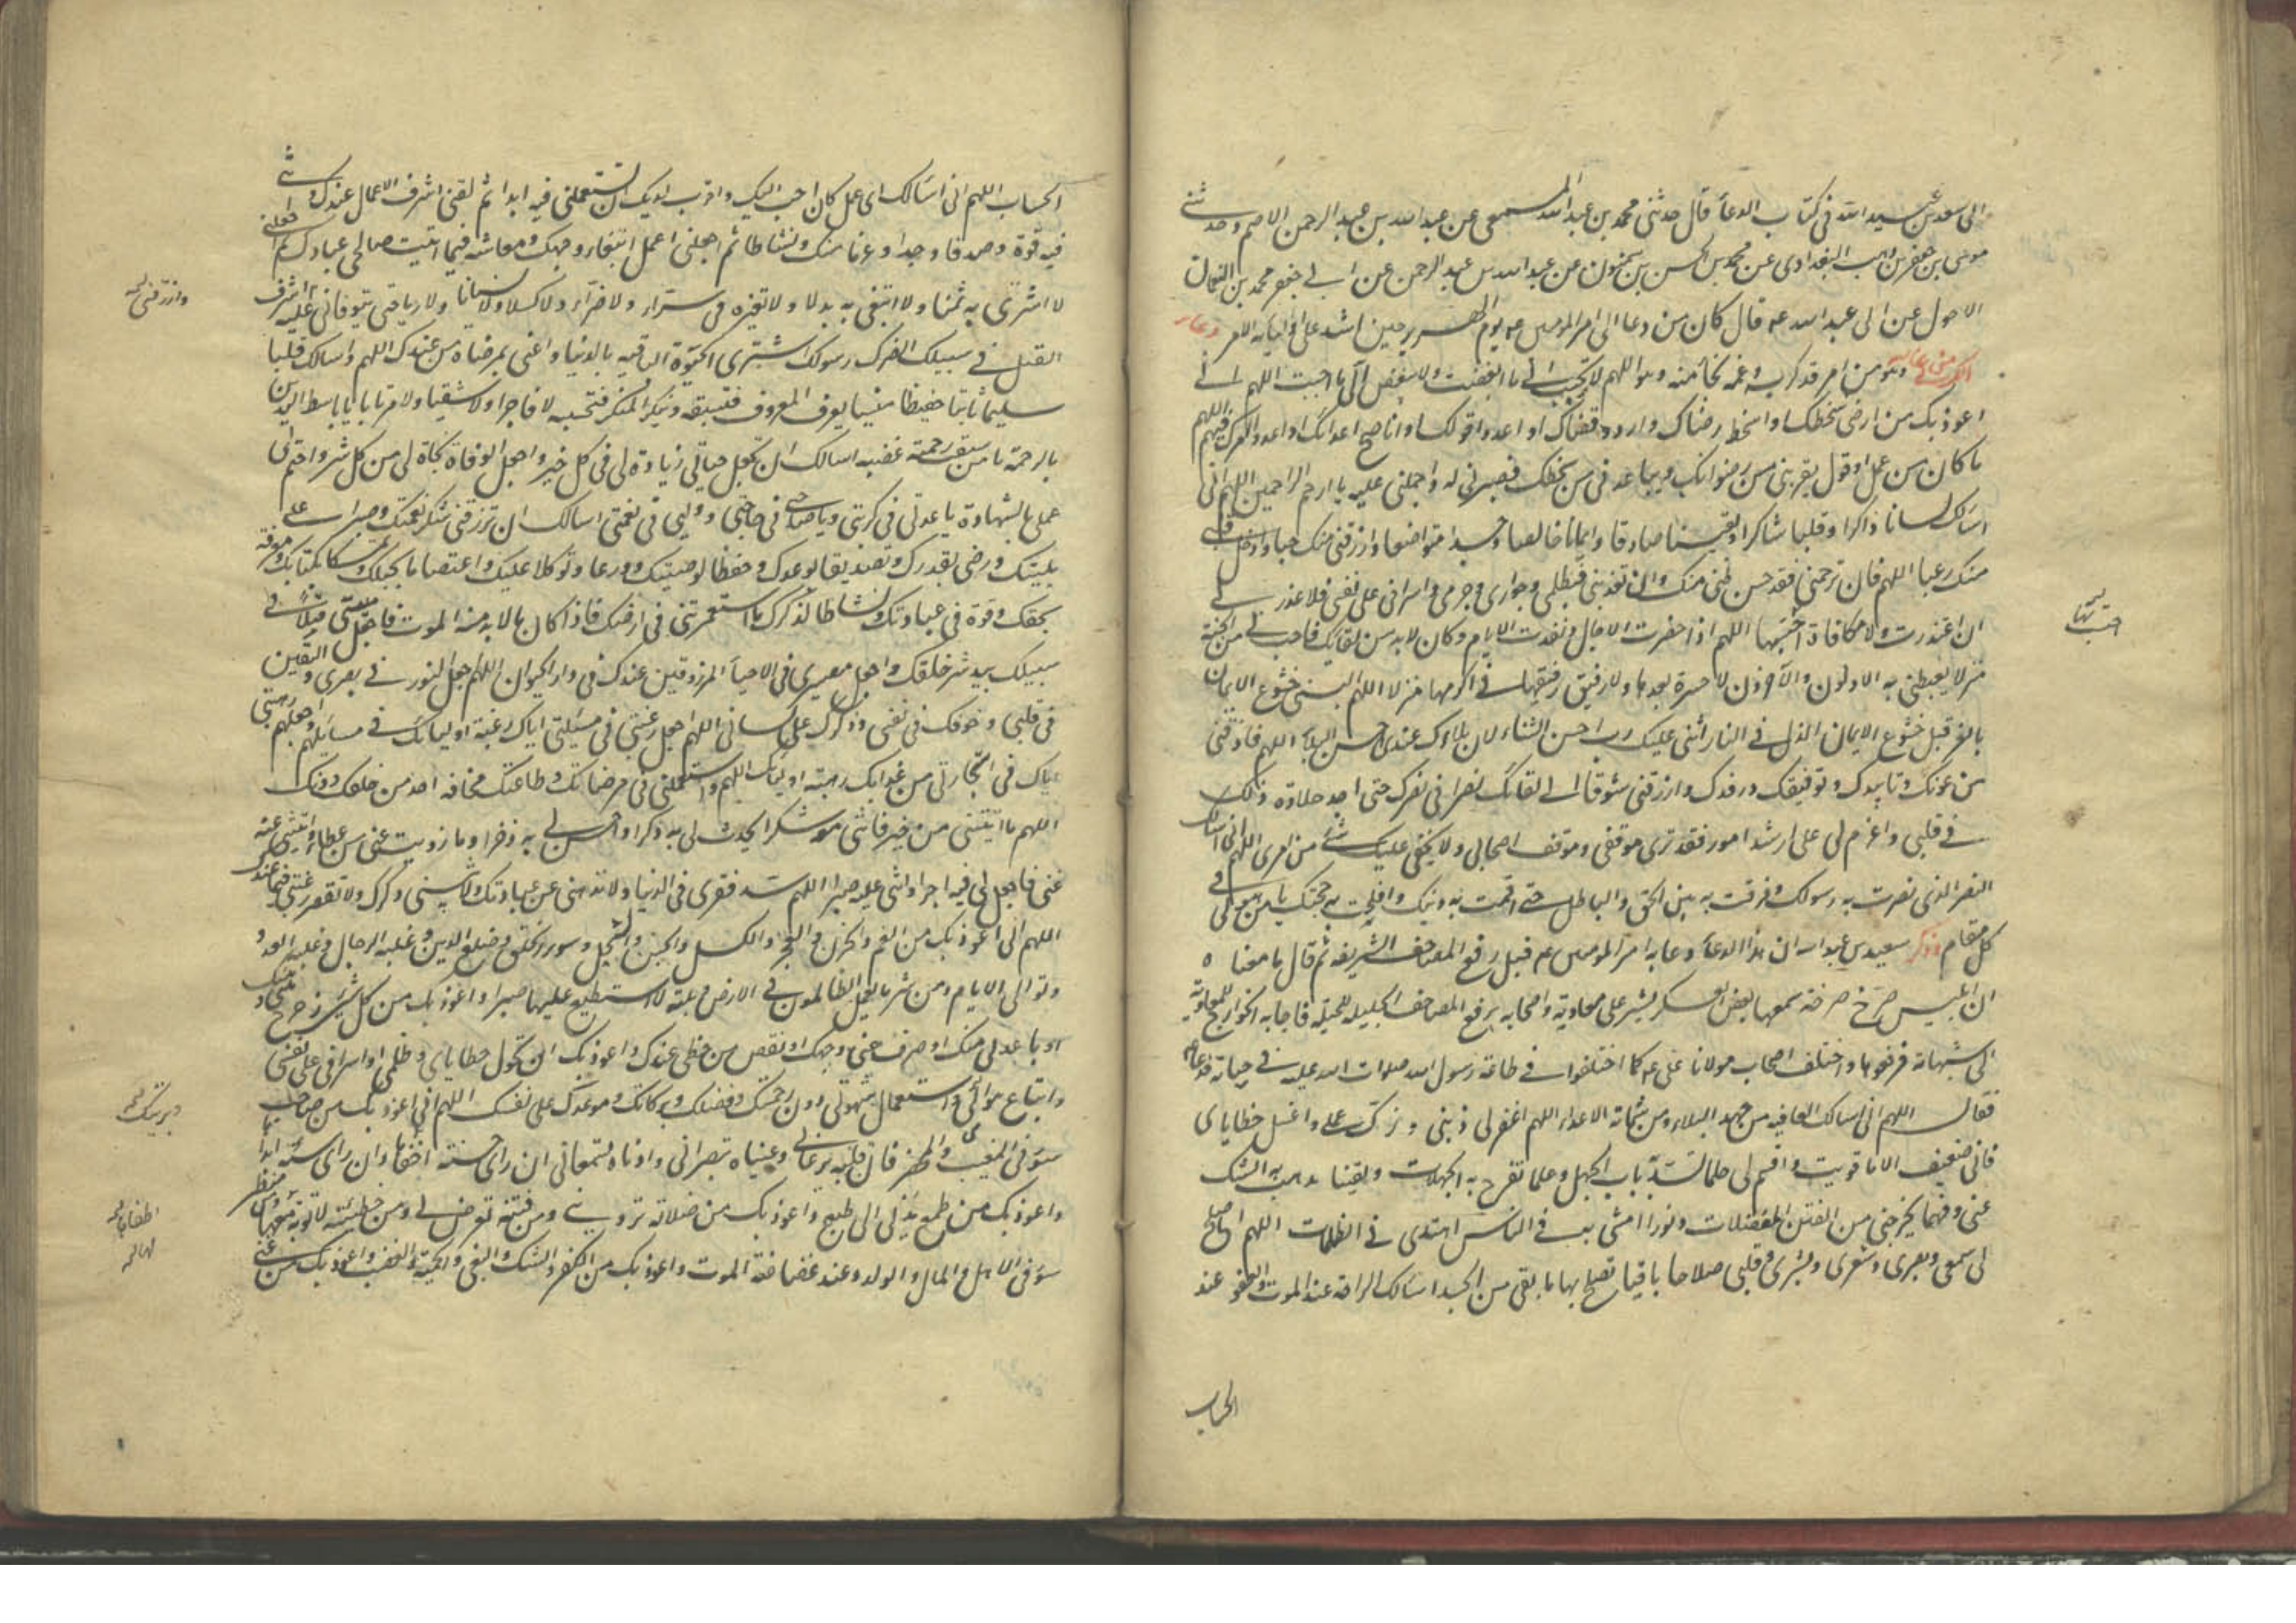 الى سعد بن عبد الله فى كتاب الدعاء قال حدثنى محمد بن عبد الله المسمعى عن عبد الله بن عبد الرحمن الاصم وحدثنى
موسى بن جعفر بن وهب البغدادى عن محمد بن الحسن بن شمون عن عبد الله بن عبد الرحمن عن ابى جعفر محمد بن النعمان
الاحول عن ابى عبد الله عه قال كان من دعا امير المومنين عه يوم الهرير حين اشتد على اوليائه الامر دعاء
الكرب من دعا به وهو من امر قد كربه وغمه نجاه منه وهو اللهم لا تحبب الى ما ابغضت ولا تبغض الى ما احببت اللهم انى
اعوذ بك من ارضى سخطك او اسخط رضاك او ارد قضاك او اعدو قولك او اناصح اعدائك او اعدو امرك فيهم اللهم
ما كان من عمل او قول يقربنى من رضوانك ويباعدنى من سخطك فصبرنى له واحملنى عليه يا ارحم الراحمين اللهم انى
اسالك لسانا ذاكرا وقلبا شاكرا ويقينا صادقا وايمانا خالصا وجسدا متواضعا وارزقنى منك حبا وادخل قلبى
منك رعبا اللهم فان ترحمنى فقد حسن ظنى منك وان تعذبنى فبظلمى وجوارى وجرمى واسرافى على نفسى فلا عذر لى
ان اعتذرت ولا مكافاة احتسبها اللهم اذا حضرت الاجال ونفدت الايام وكان لا بد من لقائك فاجب لى من الجنة
منزلا يغبطنى به الاولون والآخرون لا حسرة بعدها ولا رفيق رفيقها فى اكرمها منزلا اللهم البسنى خشوع الايمان
بالعز قبل خشوع الايمان الذل فى النار اثنى عليك رب احسن الثناء لان بلاءك عندى احسن البلاء اللهم فاذقنى
من عونك وتاييدك وتوفيقك ورفدك وارزقنى شوقا الى لقائك نصرا فى نصرك حتى اجد حلاوة ذلك
فى قلبى واعزم لى على ارشد امور فقد ترى موقفى وموقف اصحابى ولا يخفى عليك شئ من امرى اللهم انى اسالك
النصر الذى نصرت به رسولك وفرقت به بين الحق والباطل حتى اقمت به دينك وافلجت به حجتك يا من هو لى فى
كل مقام وذكر سعيد بن عبد الله ان هذا الدعاء دعا به امير المومنين عم قبل رفع المصاحف الشريفه ثم قال ما معناه
ان ابليس صرخ صرخة سمعها بعض العسكر يشير على معاوية واصحابه برفع المصاحف الجليله للحيله فاجابه الخوارج لمعاوية
الى شبهاته فرفعوها واختلف اصحاب مولانا على عه كما اختلفوا فى طاعة رسول الله صلوات الله عليه فى حياته فدعا عه
فقال اللهم انى اسالك العافيه من جهد البلاء ومن شماتة الاعداء اللهم اغفر لى ذنبى وزك على واغسل خطاياى
فانى ضعيف الا ما قويت واقسم لى حلما تسد به باب الجهل وعلما تفرج به الجهلات ويقينا تذهب به الشك
عنى وفهما يخرجنى من الفتن المعضلات ونورا امشى به فى الناس اهتدى به فى الظلمات اللهم اصلح
لى سمعى وبصرى وشعرى وبشرى وقلبى صلاحا باقيا تصلح بها ما بقى من الجسد اسالك الراحة عند الموت والعفو عند
الحساب
الحساب اللهم انى اسالك اى عمل كان احب اليك واقرب لديك ان تستعملنى فيه ابدا ثم لقنى اشرف الاعمال عندك وآتنى
فيه قوة وصدقا وجدا وعزما منك ونشاطا ثم اجعلنى اعمل ابتغاء وجهك ومعاشه فيما اتيت صالحى عبادك ثم اجعلنى
لا اشترى به ثمنا ولا ابتغى به بدلا ولا تغيره فى سراء ولا ضراء ولا كسلا ولا نسيانا ولا رياء حتى تتوفانى عليه اشرف
وارزقنى
القتل فى سبيلك انصرك ورسولك اشترى الحيوة الباقيه بالدنيا واغنى بمرضاة من عندك اللهم واسالك قلبا
سليما ثابتا حفيظا منيبا يعرف المعروف فيتبعه وينكر المنكر فتجنبه لا فاجرا ولا شقيا ولا مرتابا يا باسط اليدين
بالرحمة يا من سبقت رحمته غضبه اسالك ان تجعل حياتى زيادة لى فى كل خير واجعل الوفاة نجاة لى من كل شر واختم لى
عملى بالشهادة يا عدتى فى كربتى ويا صاحبى فى حاجتى ووليى فى نعمتى اسالك ان ترزقنى شكر نعمتك وصبرا على
بليتك ورضى بقدرك وتصديقا لوعدك وحفظا لوصيتك وورعا وتوكلا عليك واعتصاما بحبلك وتمسكا بكتابك ومعرفة
بحقك وقوة فى عبادتك ونشاطا لذكرك ما استعمرتنى فى ارضك فاذا كان ما لا بد منه الموت فاجعل منيتى قتلا فى
سبيلك بيد شر خلقك واجعل مصيرى فى الاحياء المرزوقين عندك فى دار الحيوان اللهم اجعل النور فى بصرى واليقين
فى قلبى وخوفك فى نفسى وذكرك على لسانى اللهم اجعل رغبتى فى مسئلتى اياك رغبة اوليائك فى مسائلهم واجعل رهبتى
اياك فى استجارتى من عذابك رهبة اوليائك اللهم واستعملنى فى مرضاتك وطاعتك مخافة احد من خلقك دونك
اللهم ما اتيتنى من خير فاتنى معه شكرا يحدث لى به ذكرا واحسن لى به ذخرا وما زويت عنى من عطاء واتيتنى عنه
غنى فاجعل لى فيه اجرا واتنى عليه صبرا اللهم سد فقرى فى الدنيا ولا تلهنى عن عبادتك ولا تنسنى ذكرك ولا تقصر رغبتى فيما عندك
اللهم انى اعوذ بك من الهم والحزن والعجز والكسل والجبن والبخل وسوء الخلق وضلع الدين وغلبة الرجال وغلبة العدو
وتوالى الايام ومن شر ما يعمل الظالمون فى الارض وبلية لا استطيع عليها صبرا واعوذ بك من كل شئ زحزح بينى وبينك
او باعدنى منك او صرف عنى وجهك او نقص من حظى عندك واعوذ بك ان تحول خطاياى وظلمى واسرافى على نفسى
واتباع هوائى واستعمال شهوتى دون رحمتك وفضلك وبركاتك وموعدك على نفسك اللهم انى اعوذ بك من صاحب
وبركتك
سوء فى المغيب والمحضر فان قلبه يرعانى وعيناه تبصرانى واذناه تسمعانى ان راى حسنة اخفاها وان راى سيئة ابداها
واعوذ بك من طمع يدنى الى طبع واعوذ بك من ضلالة تردينى ومن فتنة تعرض لى ومن خطيئة لا توبة معها ومن منظر
سوء فى الاهل والمال والولد وعند غضاضة الموت واعوذ بك من الكفر والشك والبغى والحمية والغضب واعوذ بك من غنى